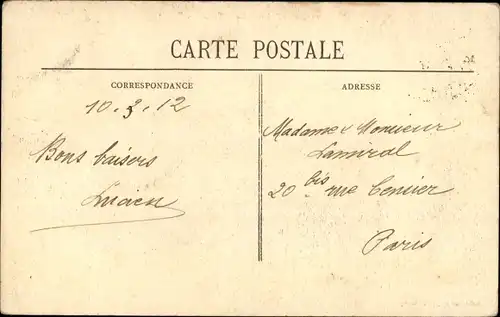 CARTE POSTALE
CORRESPONDANCE
ADRESSE
10.3.12
Bons baisers
Lucien
Madame & Monsieur
Lamirol
20 bis rue Censier
Paris